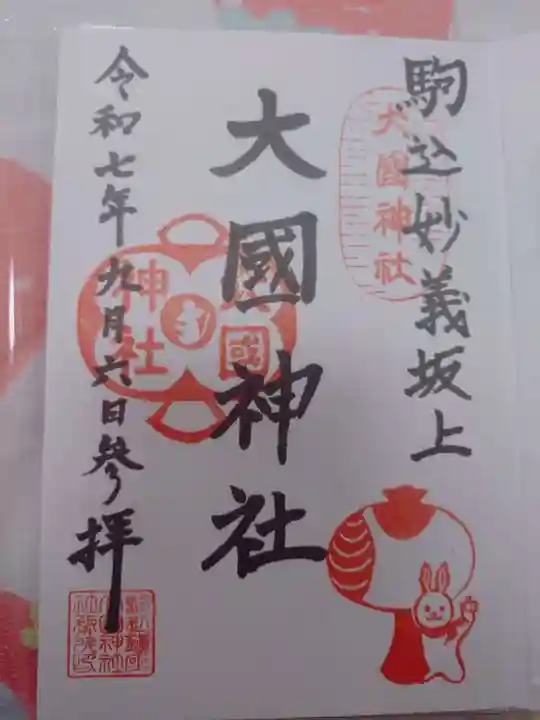 駒込妙義坂上
大國神社
大國神社
大國神社
令和七年九月六日参拝